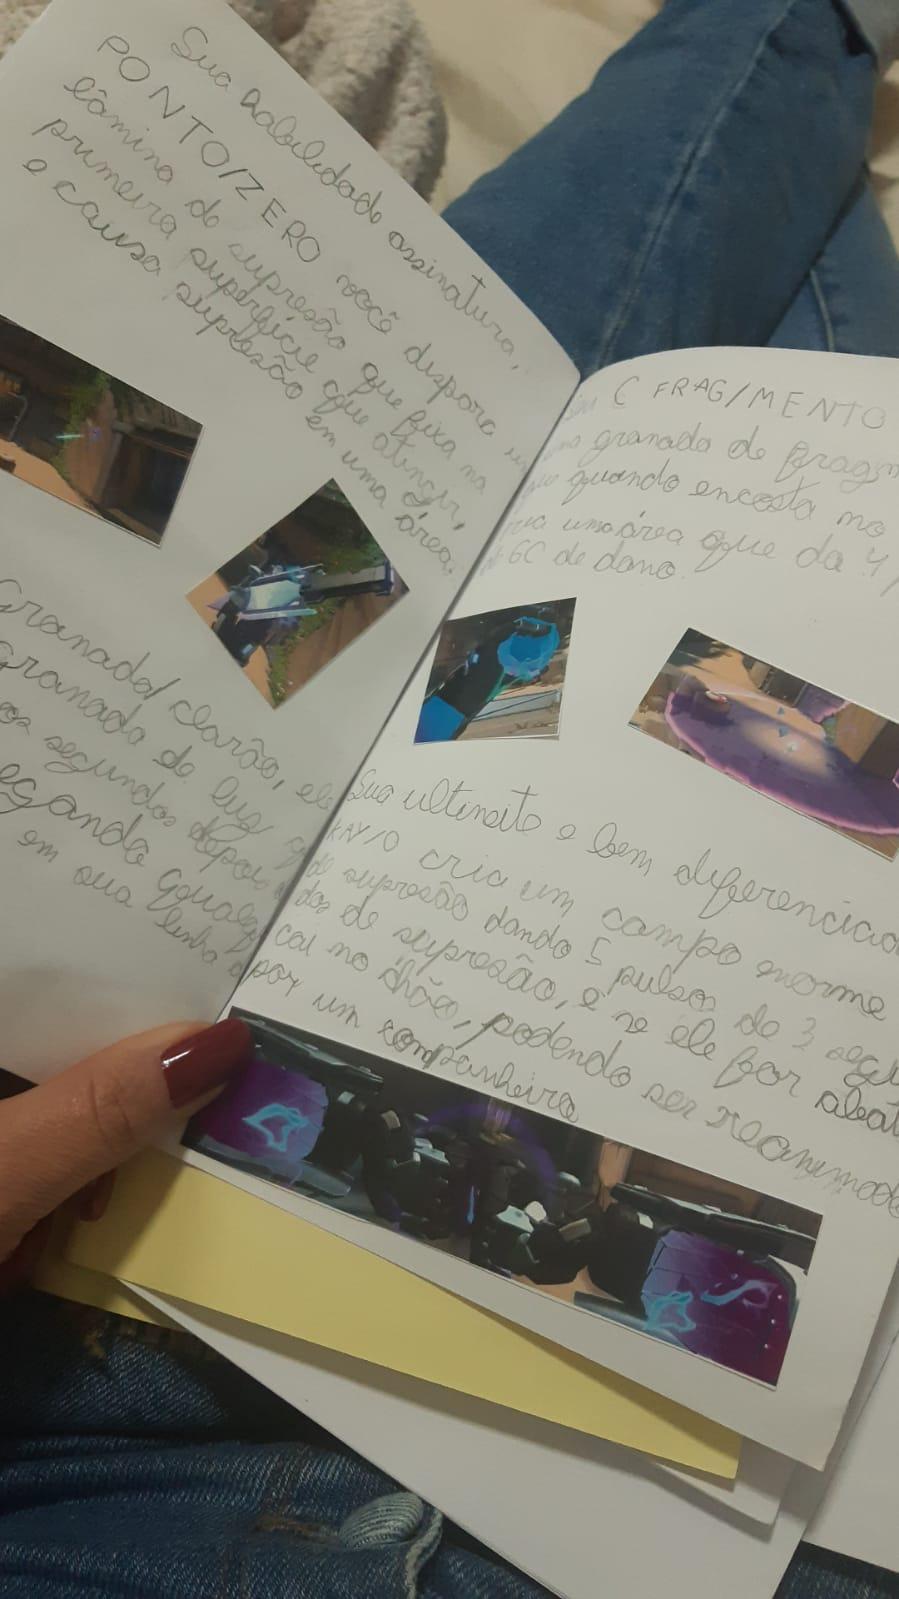 Sua habilidade assinatura,
PONTO/ZERO você dispara
lâmina de supresão que fixa na
primeira superfície que atingir,
e causa supresão em uma área.
Granada/clarão, ele
granada de luz
segundos depois
qualq
em sua linha
C FRAG/MENTO
granada de fragm
quando encosta no
uma área que da 4
de GC de dano.
Sua ultimeito e bem diferenciad
KAY/O cria um campo enorme
de supresão dando 5 pulsos de 3 segu
dos de supresão, e se ele for abat
cai no chão, podendo ser reanimado
por um companheiro